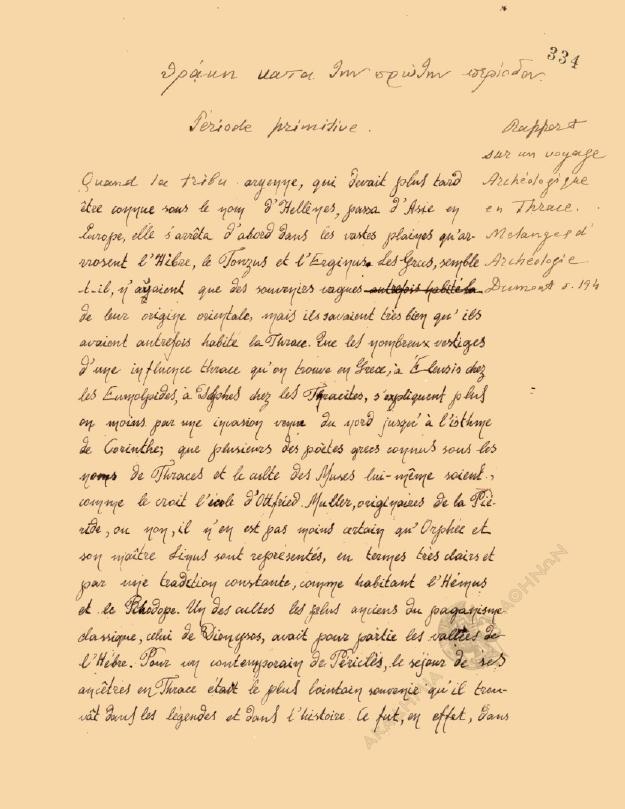 334
θράκη κατα την πρώτην περίοδον.
Période primitive.
Rapport
sur un voyage
Archéologique
en Thrace.
Melanges d'
Archéologie
Dumont σ. 194
Quand la tribu aryenne, qui devait plus tard
être connue sous le nom d'Hellènes, passa d'Asie en
Europe, elle s'arrêta d'abord dans les vastes plaines qu'ar-
rosent l'Hèbre, le Tonzus et l'Erginus. Les Grecs, semble
t-il, n'avaient que des souvenirs vagues autrefois habité la
de leur origine orientale, mais ils savaient très bien qu'ils
avaient autrefois habité la Thrace. Que les nombreux vestiges
d'une influence thrace qu'on trouve en Grèce, à Eleusis chez
les Eumolpides, à Delphes chez les Thracites, s'expliquent plus
ou moins par une invasion venue du nord jusqu'à l'isthme
de Corinthe; que plusieurs des poètes grecs connus sous les
noms de Thraces et le culte des Muses lui-même soient,
comme le croit l'école d'Ottfried Muller, originaires de la Pié-
ride, ou non, il n'en est pas moins certain qu'Orphée et
son maître Linus sont représentés, en termes très clairs et
par une tradition constante, comme habitant l'Hémus
et le Rhodope. Un des cultes les plus anciens du paganisme
classique, celui de Dionysos, avait pour patrie les vallées de
l'Hèbre. Pour un contemporain de Périclès, le séjour de ses
ancêtres en Thrace était le plus lointain souvenir qu'il trou-
vât dans les légendes et dans l'histoire. Ce fut, en effet, dans
ΑΚΑΔΗΜΙΑ ΑΘΗΝΩΝ